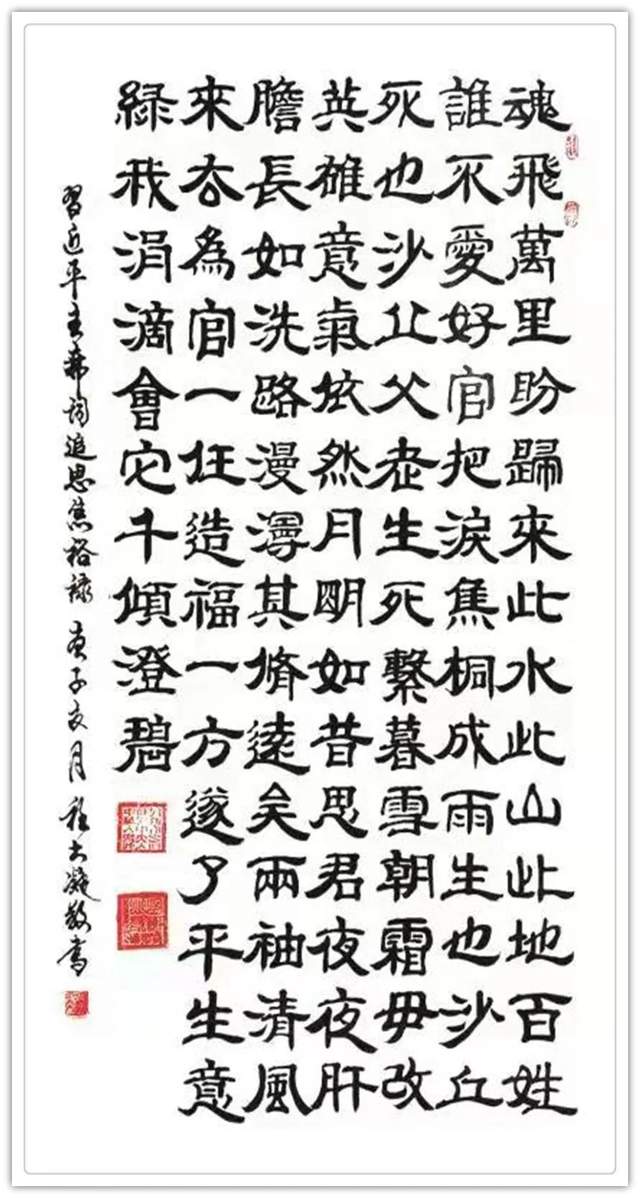 魂飛萬里盼歸來此水此山此地百姓
誰不愛好官把淚焦桐成雨生也沙丘
死也沙丘父老生死繫暮雪朝霜毋改
英雄意氣依然月明如昔思君夜夜肝
膽長如洗路漫漫其脩遠矣兩袖清風
來去為官一任造福一方遂了平生意
綠我涓滴會它千傾澄碧
習近平主席詞追思焦裕祿 庚子月 大凝敬書